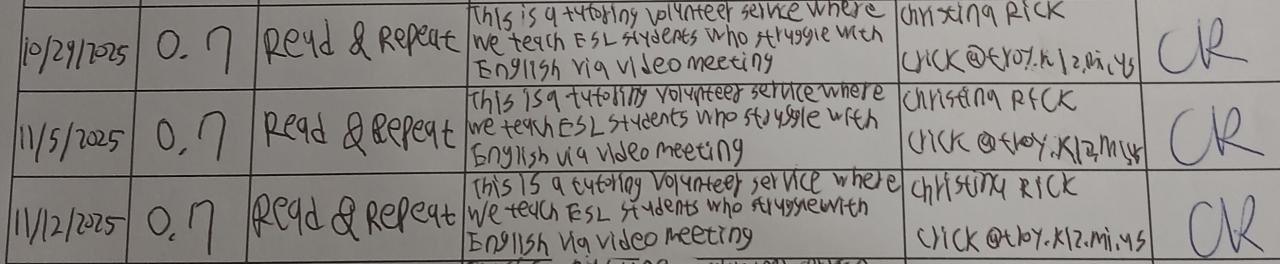 10/29/2025 0.7 Read & Repeat This is a tutoring volunteer service where Christina Rick
we teach ESL students who struggle with crick@troy.k12.mi.us CR
English via video meeting
11/5/2025 0.7 Read & Repeat This is a tutoring volunteer service where Christina Rick
we teach ESL students who struggle with crick@troy.k12.mi.us CR
English via video meeting
11/12/2025 0.7 Read & Repeat This is a tutoring volunteer service where Christina Rick
we teach ESL students who struggle with crick@troy.k12.mi.us CR
English via video meeting